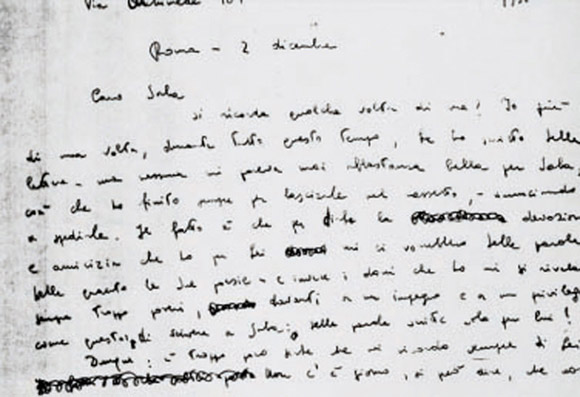 Via
Roma - 2 dicembre
Caro Saba
si ricorda qualche volta di me? Io più
di una volta, durante tutto questo tempo, Le ho scritto delle
lettere - ma nessuna mi pareva mai abbastanza bella per Saba,
così che ho finito sempre per lasciarle nel cassetto, - rinunciando
a spedirle. Il fatto è che per dirLe la devozione
e amicizia che ho per Lei mi ci vorrebbero delle parole
belle quanto le Sue poesie - e invece i doni che ho mi si rivela
sempre troppo poveri, davanti a un impegno e a un privilegi
come questo: di scrivere a Saba; delle parole scritte solo per lui!
Dunque: è troppo poco dire che mi ricordo sempre di Lei
Non c'è giorno, si può dire, che non